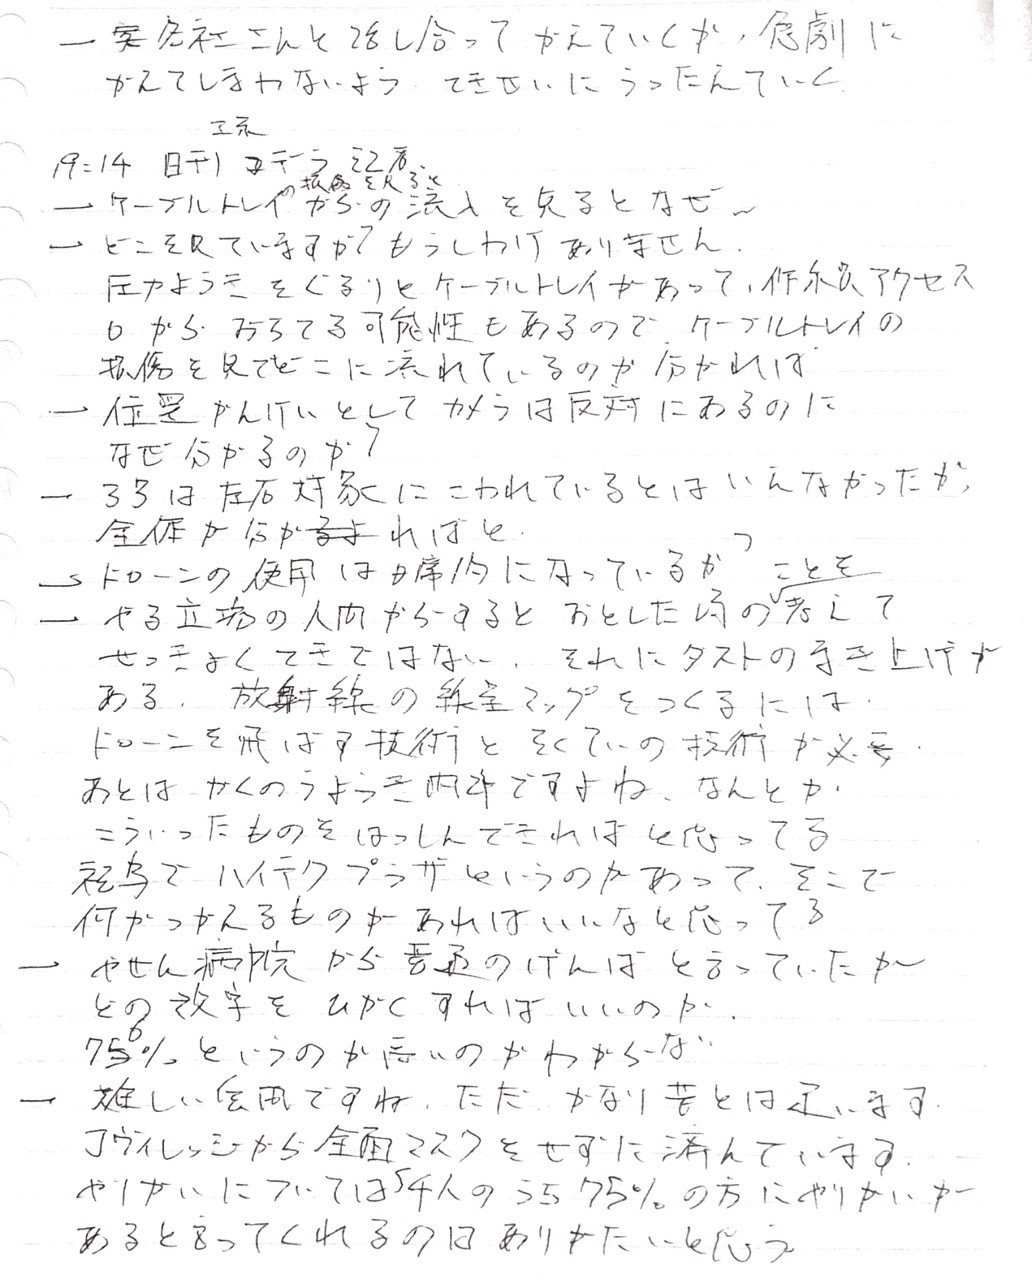 ー 実名社さんと話し合って かえていくが、急劇に
かえてしまわないよう てきせいに うったえていく
工系
19:14 日刊 記者
の損傷を見ると
ー ケーブルトレイからの流入を見るとなぜ〜
ー どこを見ていますか？もうしわけありません.
圧力ようきをぐるりとケーブルトレイがあって、作業員アクセス
口から おちてる可能性もあるので ケーブルトレイの
損傷を見てどこに流れているのか分かれば
ー 位置かんけいとして カメラは反対にあるのに
なぜ分かるのか？
ー 3号は左右対象にこわれているとはいえなかったが、
全体が分かれればと.
→ ドローンの使用は 内になっているか
ことを
ー やる立場の人間からすると おとした時の考えて
せっきょくてきではない. それにダストのまき上げが
ある. 放射線の線量マップをつくるには.
ドローンを飛ばす技術と そくていの技術が必要.
あとは かくのうようき内部ですよね. なんとか.
こういったものをはっしんできればと思ってる
福島でハイテクプラザというのがあって、そこで
何かつかえるものがあればいいなと思ってる
ー やせん病院から普通のげんばと言っていたが
どの数字を ひかくすればいいのか.
75.6% というのが高いのかわからない
ー 難しい質問ですね. ただ かなり 苦とは思います.
Jヴィレッジから全面マスクをせずに済んでいます.
やりがいについては 5千人のうち75%の方にやりがいが
あると言ってくれるのはありがたいと思う